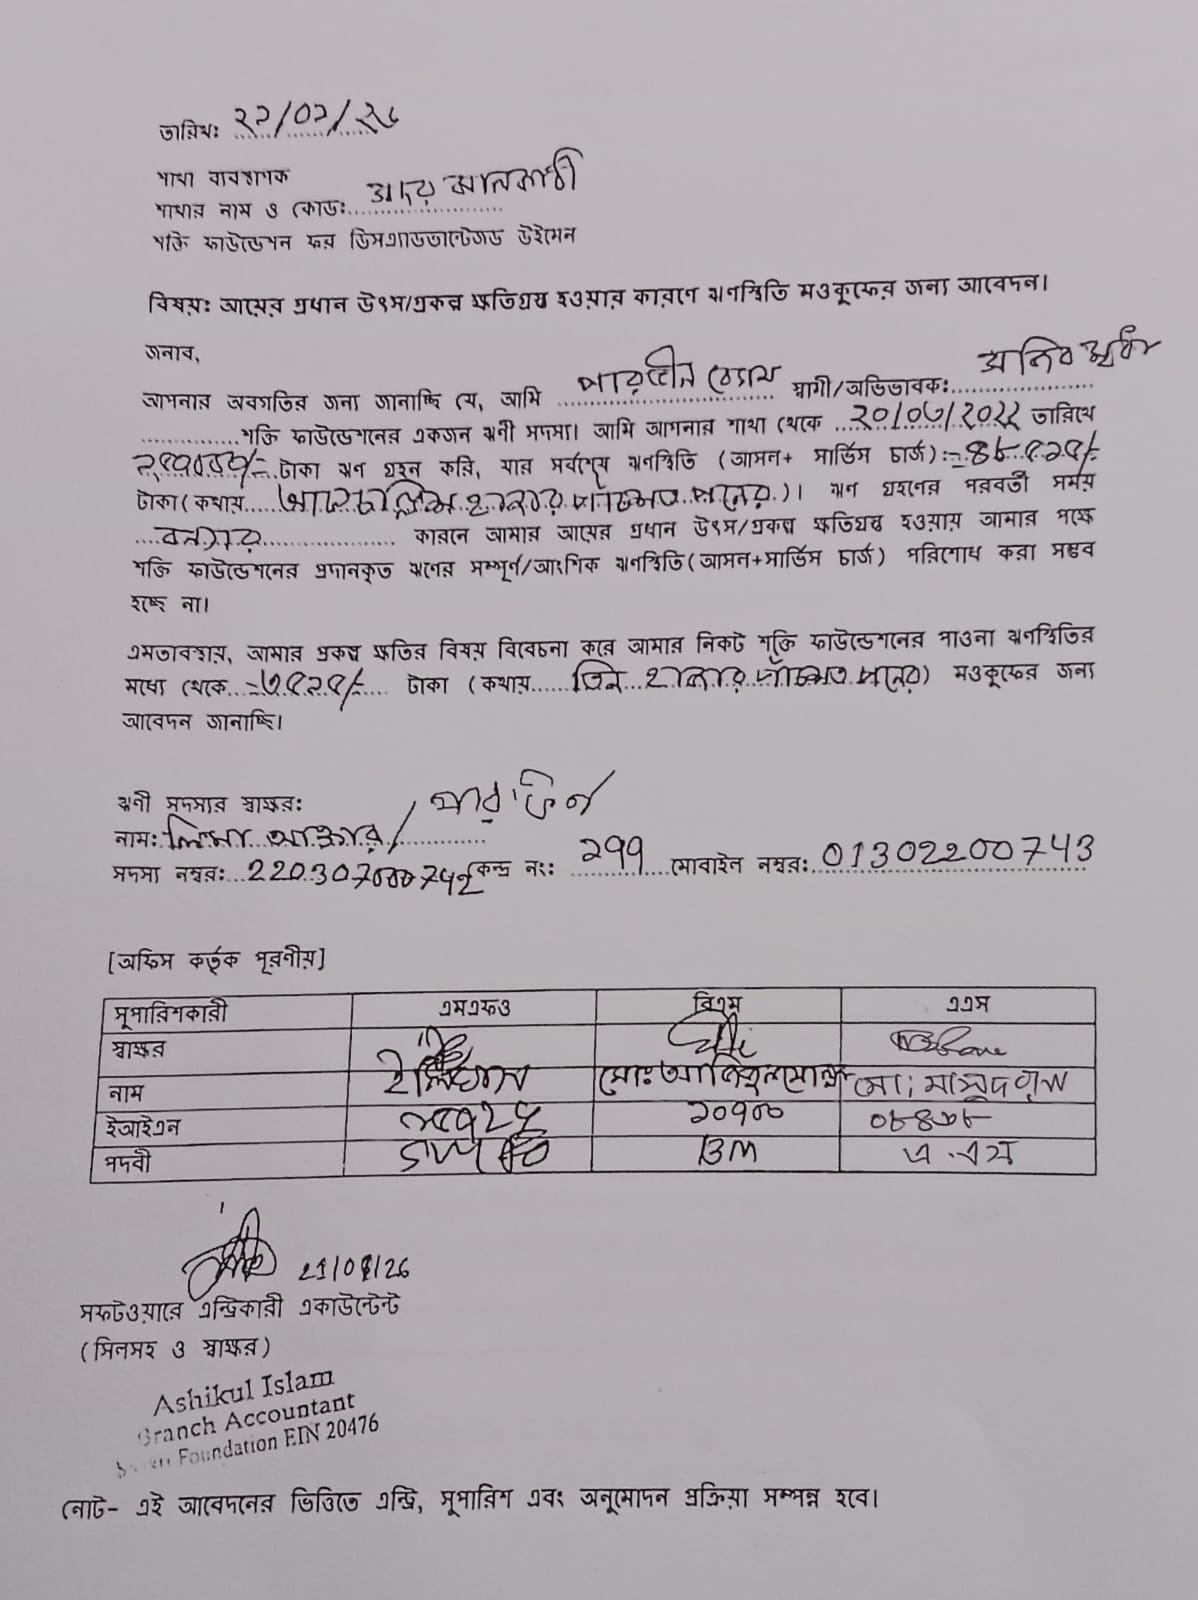 তারিখঃ ২১/০১/২৬
শাখা ব্যবস্থাপক
শাখার নাম ও কোডঃ
শক্তি ফাউন্ডেশন ফর ডিসএ্যাডভান্টেজড উইমেন
বিষয়ঃ আয়ের প্রধান উৎস/প্রকল্প ক্ষতিগ্রস্ত হওয়ার কারণে ঋণস্থিতি মওকুফের জন্য আবেদন।
জনাব,
আপনার অবগতির জন্য জানাচ্ছি যে, আমি পারভীন বেগম স্বামী/অভিভাবকঃ
শক্তি ফাউন্ডেশনের একজন ঋণী সদস্য। আমি আপনার শাখা থেকে তারিখে
টাকা ঋণ গ্রহন করি, যার সর্বশেষ ঋণস্থিতি (আসল+ সার্ভিস চার্জ):
টাকা (কথায় হাজার পাঁচশত পনের)। ঋণ গ্রহণের পরবর্তী সময়
বন্যার কারনে আমার আয়ের প্রধান উৎস/প্রকল্প ক্ষতিগ্রস্ত হওয়ায় আমার পক্ষে
শক্তি ফাউন্ডেশনের প্রদানকৃত ঋণের সম্পূর্ণ/আংশিক ঋণস্থিতি(আসল+সার্ভিস চার্জ) পরিশোধ করা সম্ভব
হচ্ছে না।
এমতাবস্থায়, আমার প্রকল্প ক্ষতির বিষয় বিবেচনা করে আমার নিকট শক্তি ফাউন্ডেশনের পাওনা ঋণস্থিতির
মধ্যে থেকে =৩৫১৫/= টাকা (কথায় তিন হাজার পাঁচশত পনের) মওকুফের জন্য
আবেদন জানাচ্ছি।
ঋণী সদস্যর স্বাক্ষরঃ
নাম: লিমা আক্তার/
সদস্য নম্বরঃ কেন্দ্র নংঃ ১৭৭ মোবাইল নম্বরঃ 01302200743
[অফিস কর্তৃক পূরণীয়]
সুপারিশকারী এমএফও বিএম এএস
স্বাক্ষর
নাম
ইআইএন ১০৭০০ ০৮৪৩৮
পদবী BM এ.এস
21/01/26
সফটওয়ারে এন্ট্রিকারী একাউন্টেন্ট
(সিলসহ ও স্বাক্ষর)
Ashikul Islam
Branch Accountant
Foundation EIN 20476
নোট- এই আবেদনের ভিত্তিতে এন্ট্রি, সুপারিশ এবং অনুমোদন প্রক্রিয়া সম্পন্ন হবে।